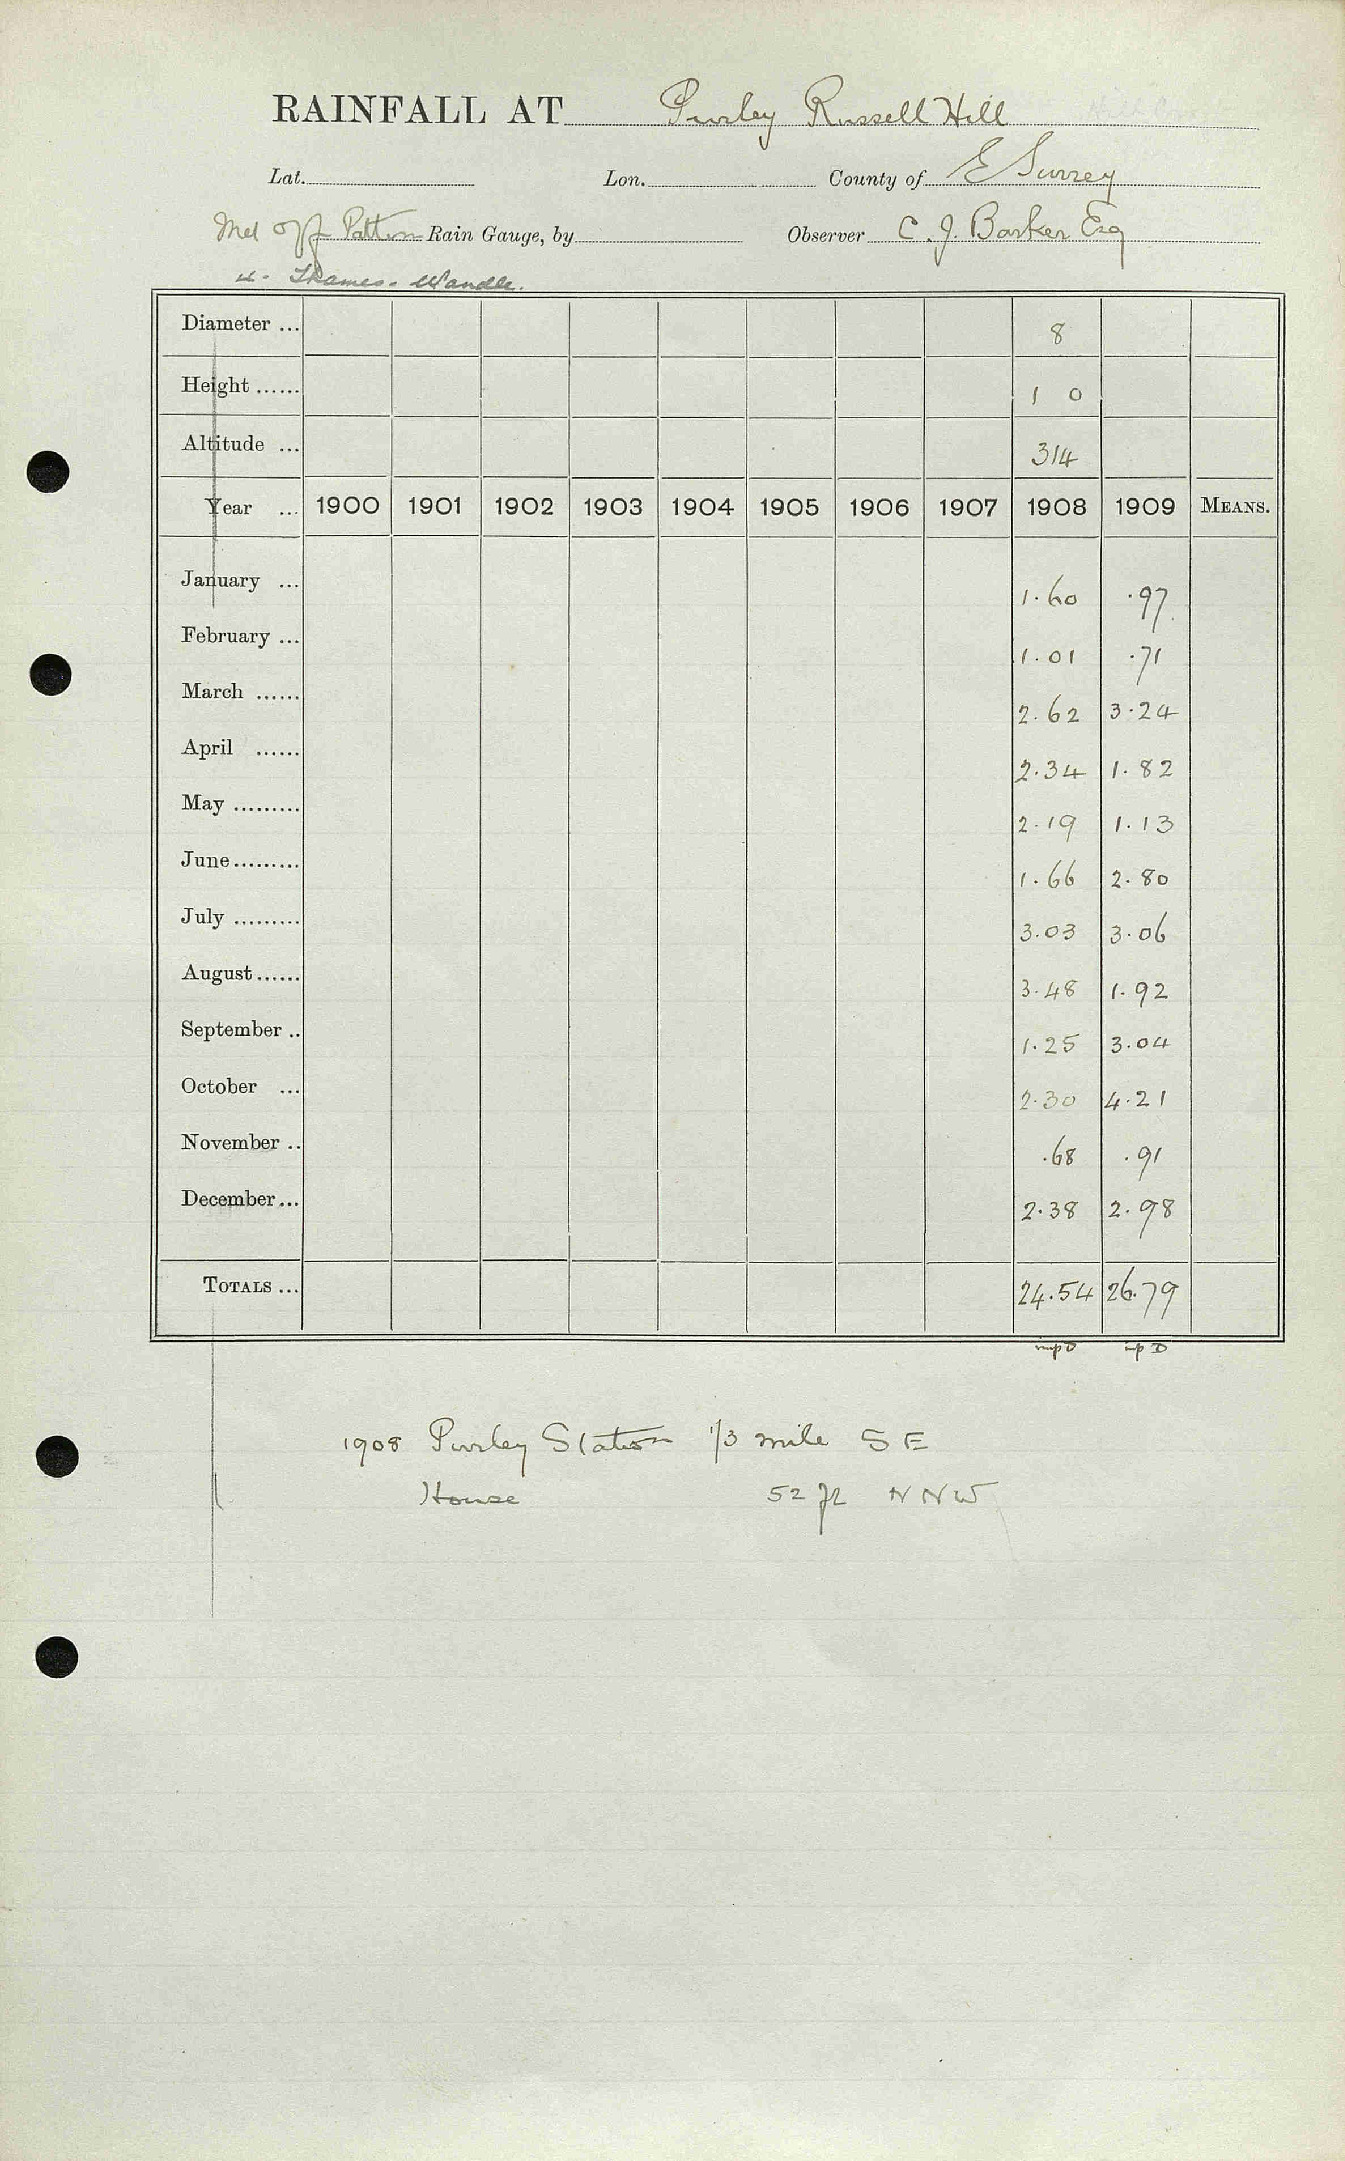 RAINFALL AT Purley Russell Hill
Lat. Lon. County of E Surrey
Met Off Pattern Rain Gauge, by Observer C. J. Barker Esq
Thames. Wandle.
Diameter ... 8
Height ...... 1 0
Altitude ... 314
Year ... 1900 1901 1902 1903 1904 1905 1906 1907 1908 1909 MEANS.
January ... 1.60 .97
February ... 1.01 .71
March ...... 2.62 3.24
April ...... 2.34 1.82
May ......... 2.19 1.13
June......... 1.66 2.80
July ......... 3.03 3.06
August...... 3.48 1.92
September .. 1.25 3.04
October ... 2.30 4.21
November .. .68 .91
December... 2.38 2.98
TOTALS ... 24.54 26.79
1908 Purley Station 1/3 mile SE
House 52 ft NNW